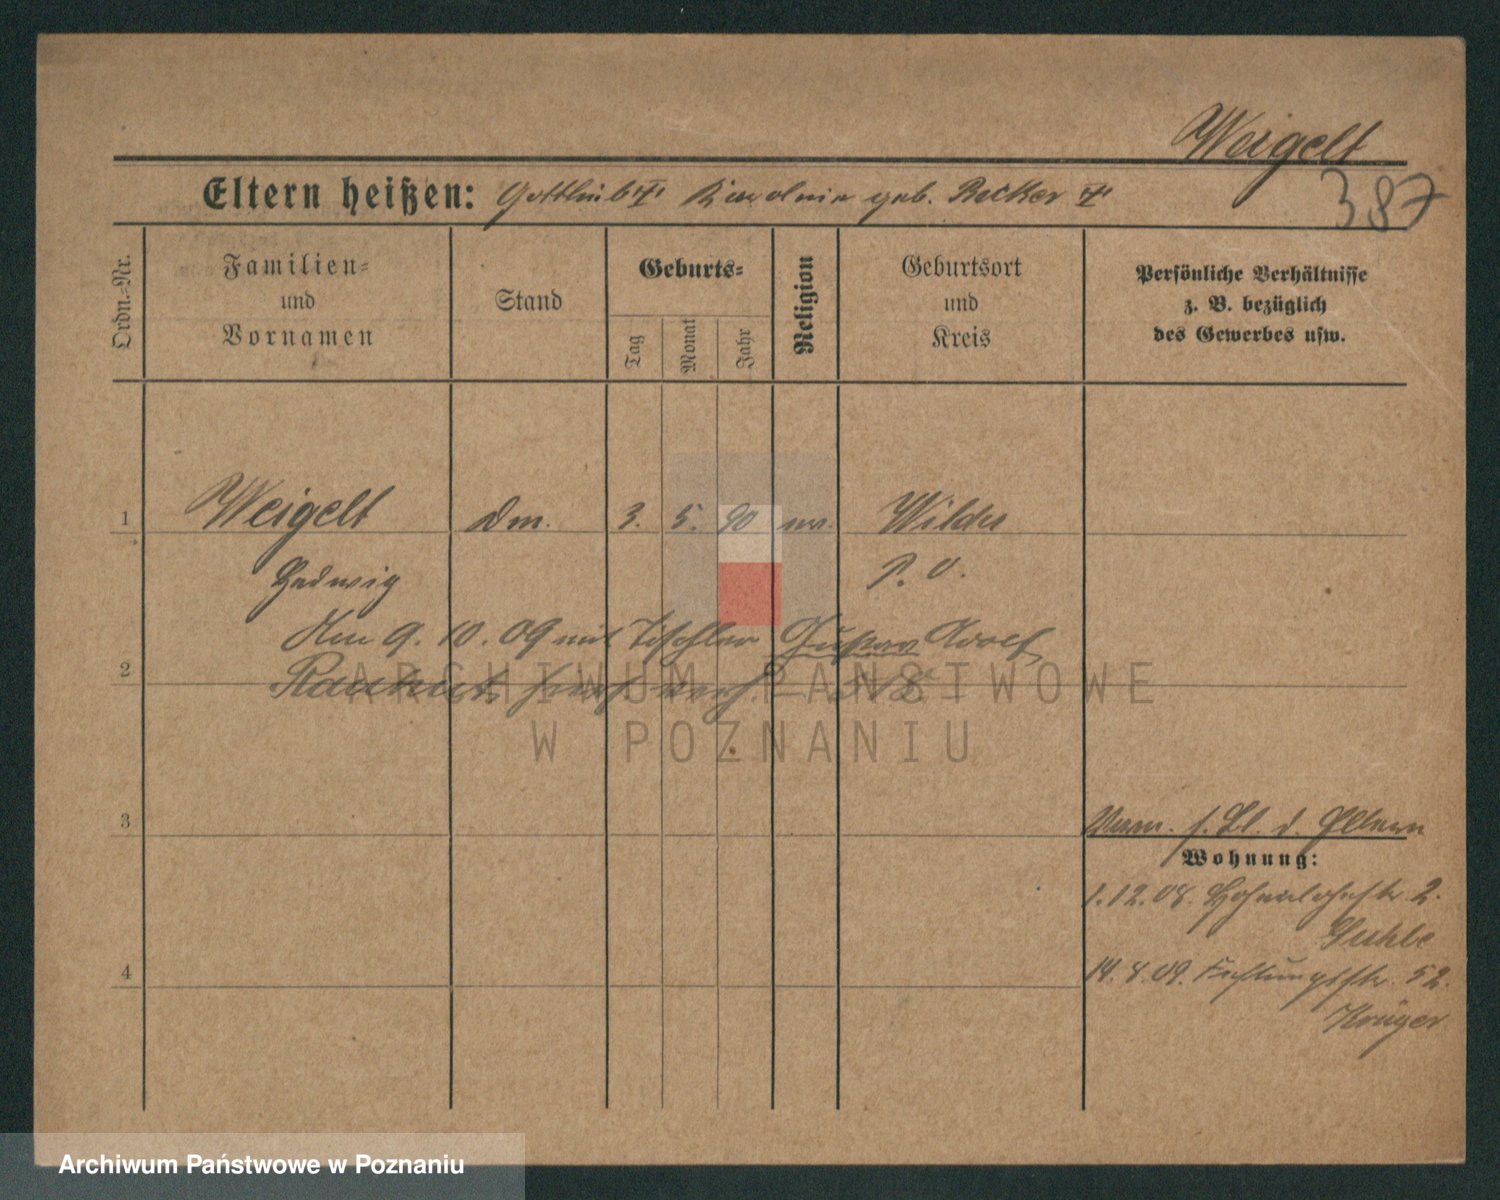 Weigelt
387
Eltern heißen: Gottlieb geb. Becker
Ordn.-Nr.
Familien-
und
Vornamen
Stand
Geburts-
Tag
Monat
Jahr
Religion
Geburtsort
und
Kreis
Persönliche Verhältnisse
z. B. bezüglich
des Gewerbes usw.
1 Weigelt 3. 5. 90 Wilda
Hedwig P. O.
9. 10. 09 mit Tischler Gustav Adolf
2
ARCHIWUM PAŃSTWOWE
W POZNANIU
3
d. Eltern
Wohnung:
1.12.08. 2.
4
14.8.09. Festungsstr. 52.
Krüger
Archiwum Państwowe w Poznaniu